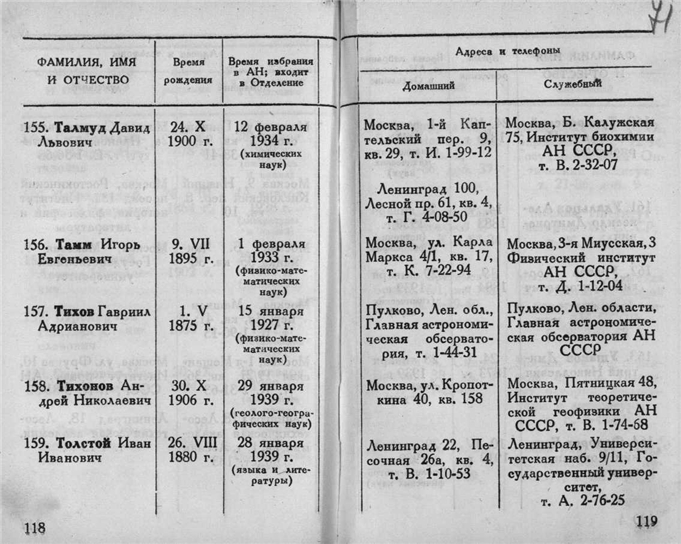 71
ФАМИЛИЯ, ИМЯ
И ОТЧЕСТВО
Время
рождения
Время избрания
в АН; входит
в Отделение
Адреса и телефоны
Домашний
Служебный
155. Талмуд Давид
Львович
24. X
1900 г.
12 февраля
1934 г.
(химических
наук)
Москва, 1-й Кап-
тельский пер. 9,
кв. 29, т. И. 1-99-12
Ленинград 100,
Лесной пр. 61, кв. 4,
т. Г. 4-08-50
Москва, Б. Калужская
75, Институт биохимии
АН СССР,
т. В. 2-32-07
156. Тамм Игорь
Евгеньевич
9. VII
1895 г.
1 февраля
1933 г.
(физико-мате-
матических
наук)
Москва, ул. Карла
Маркса 4/1, кв. 17,
т. К. 7-22-94
Москва, 3-я Миусская, 3
Физический институт
АН СССР,
т. Д. 1-12-04
157. Тихов Гавриил
Адрианович
1. V
1875 г.
15 января
1927 г.
(физико-мате-
матических
наук)
Пулково, Лен. обл.,
Главная астрономи-
ческая обсервато-
рия, т. 1-44-31
Пулково, Лен. области,
Главная астрономиче-
ская обсерватория АН
СССР
158. Тихонов Ан-
дрей Николаевич
30. X
1906 г.
29 января
1939 г.
(геолого-геогра-
фических наук)
Москва, ул. Кропот-
кина 40, кв. 158
Москва, Пятницкая 48,
Институт теоретиче-
ской геофизики АН
СССР, т. В. 1-74-68
159. Толстой Иван
Иванович
26. VIII
1880 г.
28 января
1939 г.
(языка и лите-
ратуры)
Ленинград 22, Пе-
сочная 26а, кв. 4,
т. В. 1-10-53
Ленинград, Универси-
тетская наб. 9/11, Го-
сударственный универ-
ситет,
т. А. 2-76-25
118
119